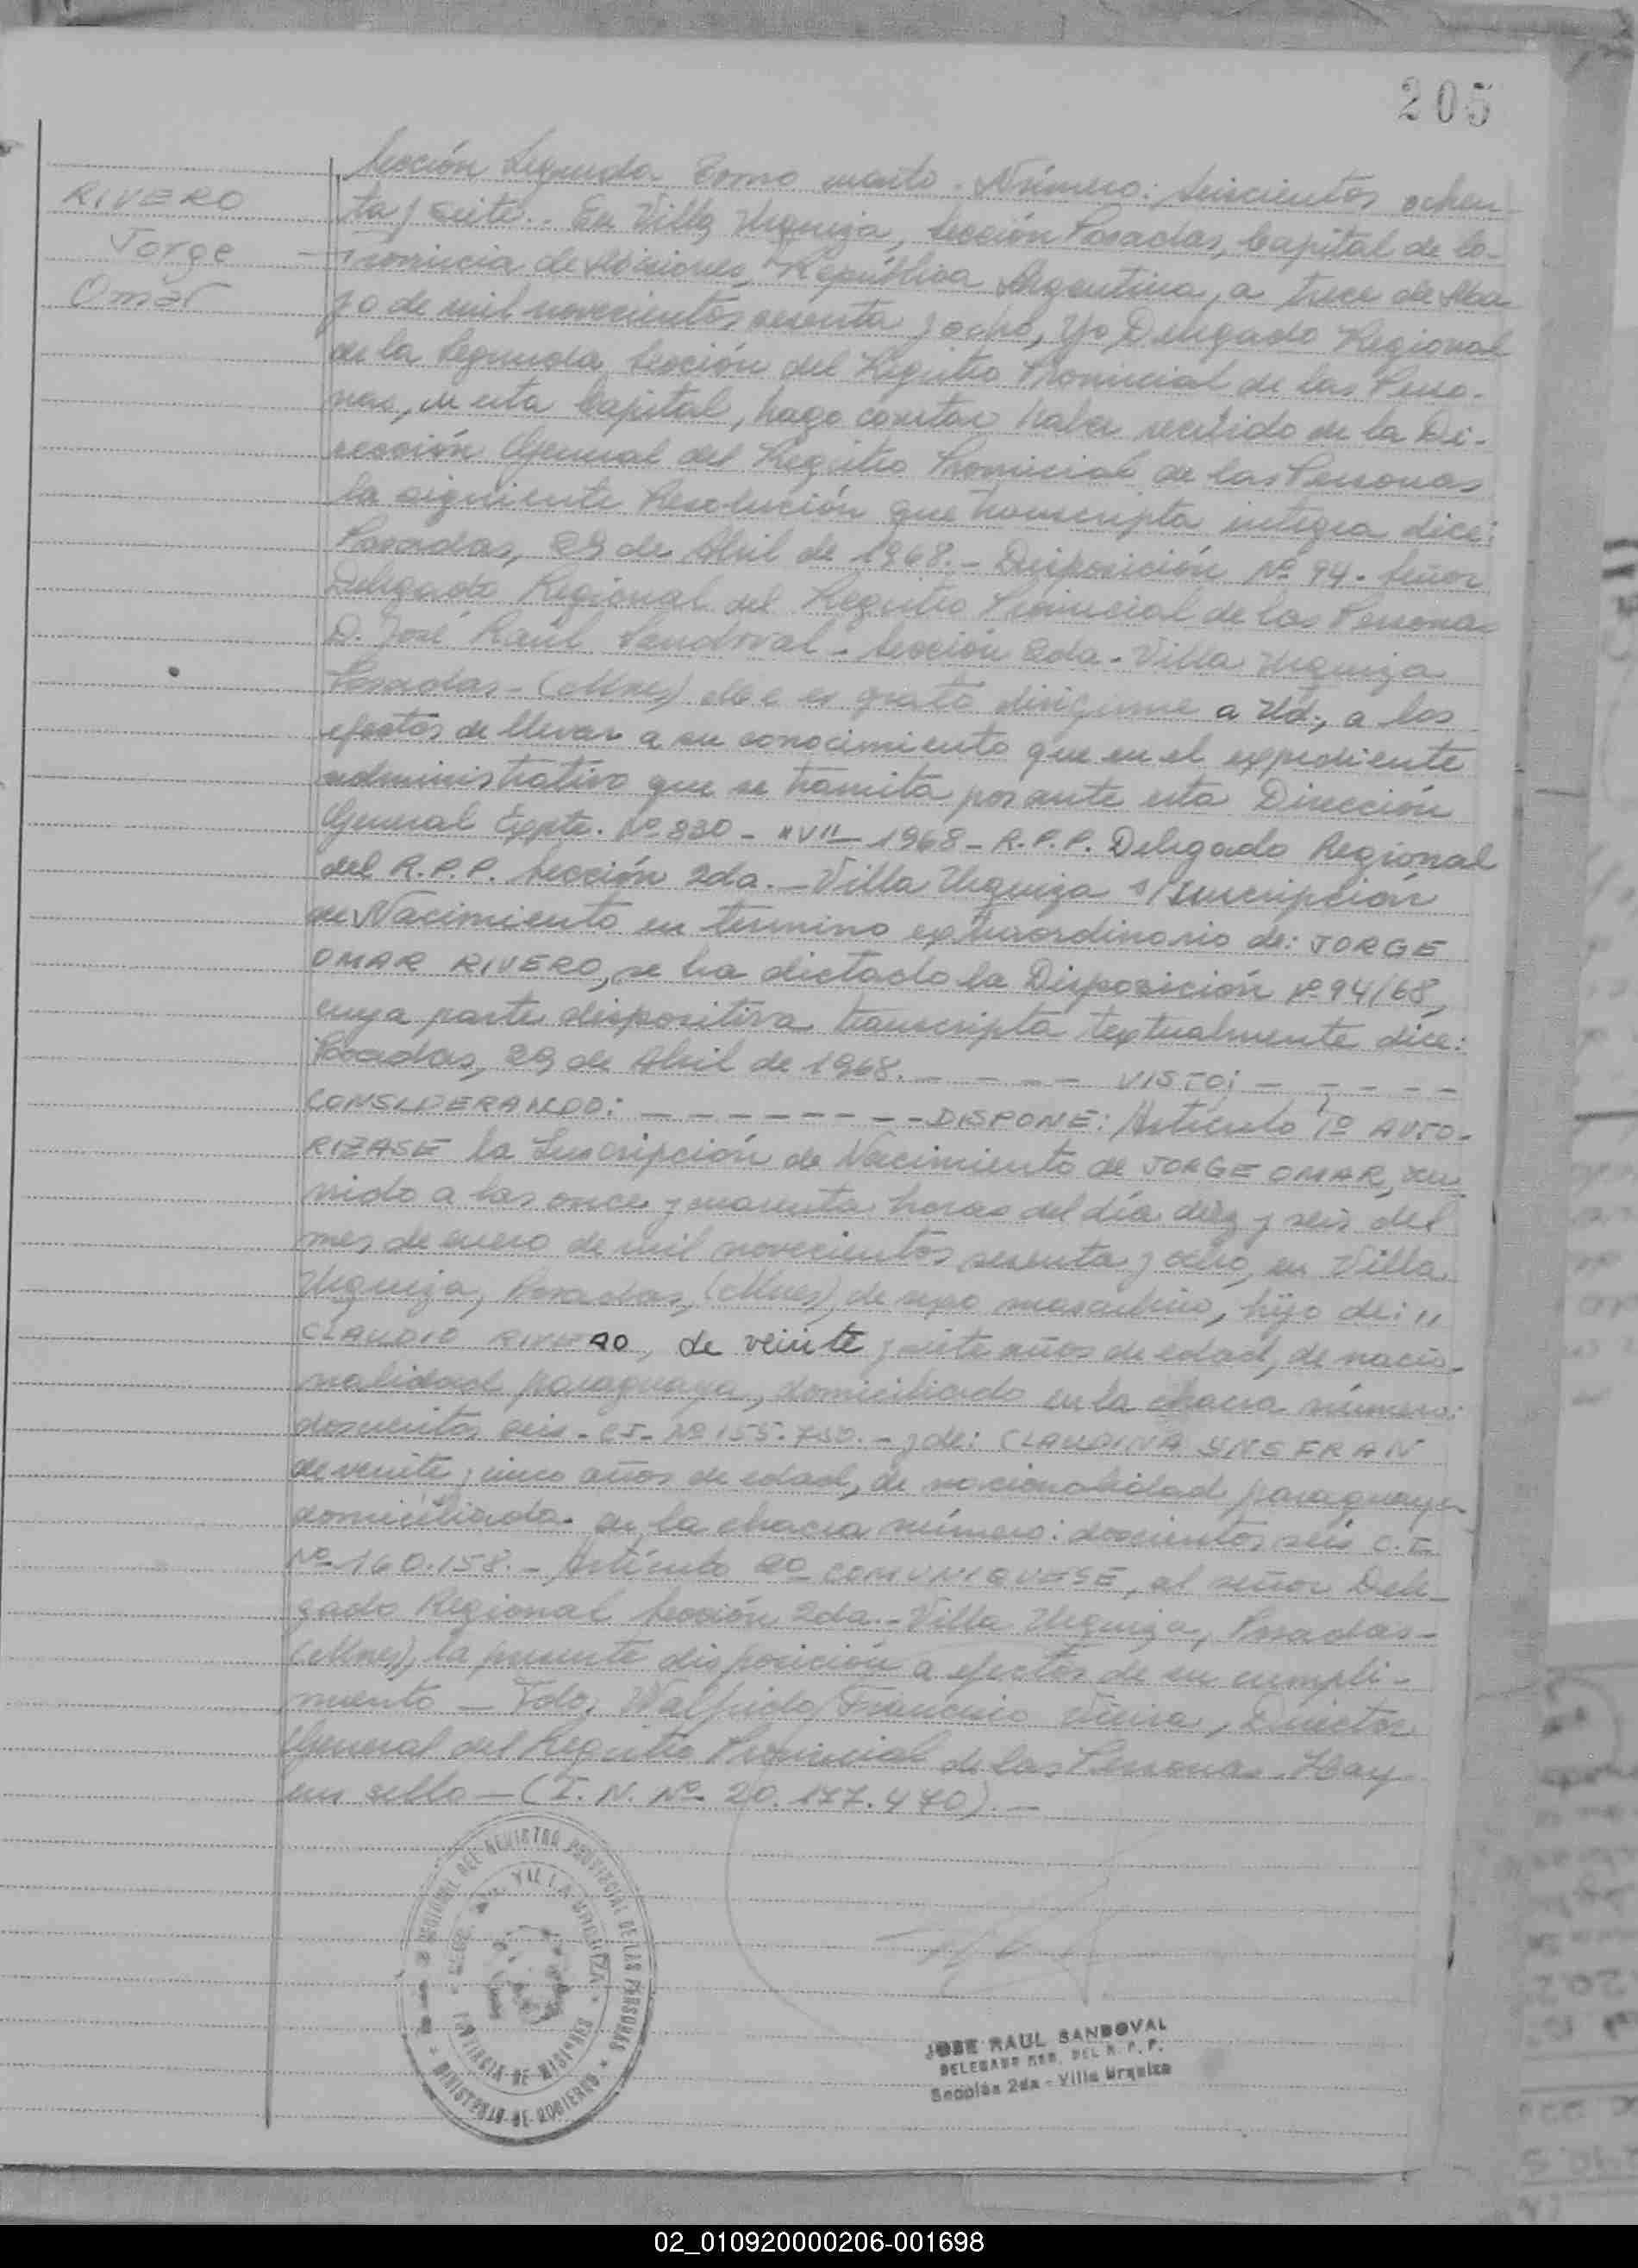 205
RIVERO
Jorge
Omar
Sección Segunda. Tomo cuarto. Número: Seiscientos ochen-
ta y siete.. En Villa Urquiza, Sección Posadas, Capital de la
Provincia de Misiones, República Argentina, a trece de Ma
yo de mil novecientos sesenta y ocho, Yo Delegado Regional
de la Segunda Sección del Registro Provincial de las Perso-
nas, en esta Capital, hago constar haber recibido de la Di-
rección General del Registro Provincial de las Personas
la siguiente Resolución que transcripta integra dice:
Posadas, 29 de Abril de 1968.- Disposición Nº 94. Señor
Delegado Regional del Registro Provincial de las Personas
D. José Raúl Sandoval - Sección 2da. - Villa Urquiza
Posadas - (Mnes) Me es grato dirigirme a Ud., a los
efectos de llevar a su conocimiento que en el expediente
administrativo que se tramita por ante esta Dirección
General Expte. Nº 830 - "V" - 1968 - R.P.P. Delegado Regional
del R.P.P. Sección 2da. - Villa Urquiza s/ Inscripción
de Nacimiento en termino extraordinario de: JORGE
OMAR RIVERO, se ha dictado la Disposición Nº 94/68,
cuya parte dispositiva transcripta textualmente dice:
Posadas, 29 de Abril de 1968. - - - - - VISTO; - - - - - -
CONSIDERANDO: - - - - - - - - - DISPONE: Artículo 1º AUTO-
RIZASE la Inscripción de Nacimiento de JORGE OMAR, na
nido a las once y cuarenta horas del día diez y seis del
mes de enero de mil novecientos sesenta y ocho, en Villa
Urquiza, Posadas, (Mnes) de sexo masculino, hijo de: "
CLAUDIO RIVERO, de veinte y siete años de edad, de nacio-
nalidad paraguaya, domiciliado en la chacra número:
doscientos seis - C.I. Nº 155.750. - y de: CLAUDINA
de veinte y cinco años de edad, de nacionalidad paraguaya
domiciliada en la chacra número: doscientos seis C.I.
Nº 160.158. - Artículo 2º COMUNIQUESE, al señor Dele-
gado Regional Sección 2da. - Villa Urquiza, Posadas -
(Mnes), la presente disposición a efectos de su cumpli-
miento - Fdo, Walfrido Francisco Vieira, Director
General del Registro Provincial de las Personas. Hay
un sello - (I. N. Nº 20.177.470). -
REGIONAL DEL REGISTRO PROVINCIAL DE LAS PERSONAS
VILLA URQUIZA
PROVINCIA DE MISIONES
MINISTERIO DE GOBIERNO
JOSE RAUL SANDOVAL
DELEGADO REG. DEL R. P. P.
Sección 2da - Villa Urquiza
02_010920000206-001698